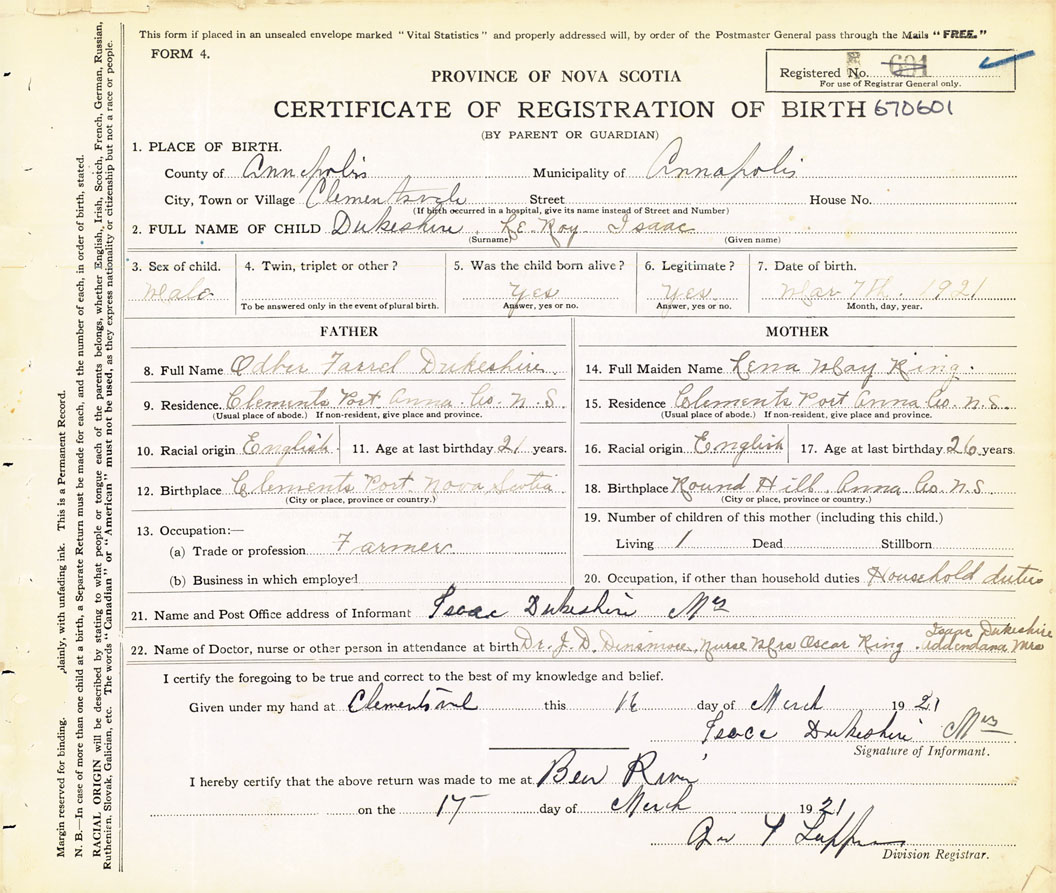 This form if placed in an unsealed envelope marked "Vital Statistics" and properly addressed will, by order of the Postmaster General pass through the Mails "FREE."
FORM 4.
Registered No. 691
For use of Registrar General only.
PROVINCE OF NOVA SCOTIA
CERTIFICATE OF REGISTRATION OF BIRTH 670601
(BY PARENT OR GUARDIAN)
1. PLACE OF BIRTH.
County of Annapolis Municipality of Annapolis
City, Town or Village Clementsvale Street House No.
(If birth occurred in a hospital, give its name instead of Street and Number)
2. FULL NAME OF CHILD Dukeshire, Le Roy Isaac
(Surname) (Given name)
3. Sex of child. 4. Twin, triplet or other? 5. Was the child born alive? 6. Legitimate? 7. Date of birth.
Male yes yes Mar 7th. 1921
To be answered only in the event of plural birth. Answer, yes or no. Answer, yes or no. Month, day, year.
FATHER
8. Full Name Odbur Farrel Dukeshire
9. Residence. Clements Port Anna. Co. N.S.
(Usual place of abode.) If non-resident, give place and province.
10. Racial origin English 11. Age at last birthday 21 years.
12. Birthplace Clements Port Nova Scotia
(City or place, province or country.)
13. Occupation:—
(a) Trade or profession Farmer
(b) Business in which employed
MOTHER
14. Full Maiden Name Lena May Ring
15. Residence Clements Port Anna Co. N.S.
(Usual place of abode.) If non-resident, give place and province.
16. Racial origin English 17. Age at last birthday 26 years.
18. Birthplace Round Hill Anna Co. N.S.
(City or place, province or country.)
19. Number of children of this mother (including this child.)
Living 1 Dead Stillborn
20. Occupation, if other than household duties Household duties
21. Name and Post Office address of Informant Isaac Dukeshire Mrs
22. Name of Doctor, nurse or other person in attendance at birth Dr. J. D. Dinsmore, Nurse Mrs Oscar Ring. Isaac Dukeshire Addendana Mrs
I certify the foregoing to be true and correct to the best of my knowledge and belief.
Given under my hand at Clementsvale this 16 day of March 1921
Isaac Dukeshire Mrs
Signature of Informant.
I hereby certify that the above return was made to me at Bear River
on the 17 day of March 1921
Division Registrar.
Margin reserved for binding. plainly, with unfading ink. This is a Permanent Record.
N. B.—In case of more than one child at a birth, a Separate Return must be made for each, and the number of each, in order of birth, stated.
RACIAL ORIGIN will be described by stating to what people or tongue each of the parents belongs, whether English, Irish, Scotch, French, German, Russian,
Ruthenien, Slovak, Galician, etc. The words "Canadian" or "American" must not be used, as they express nationality or citizenship but not a race or people.